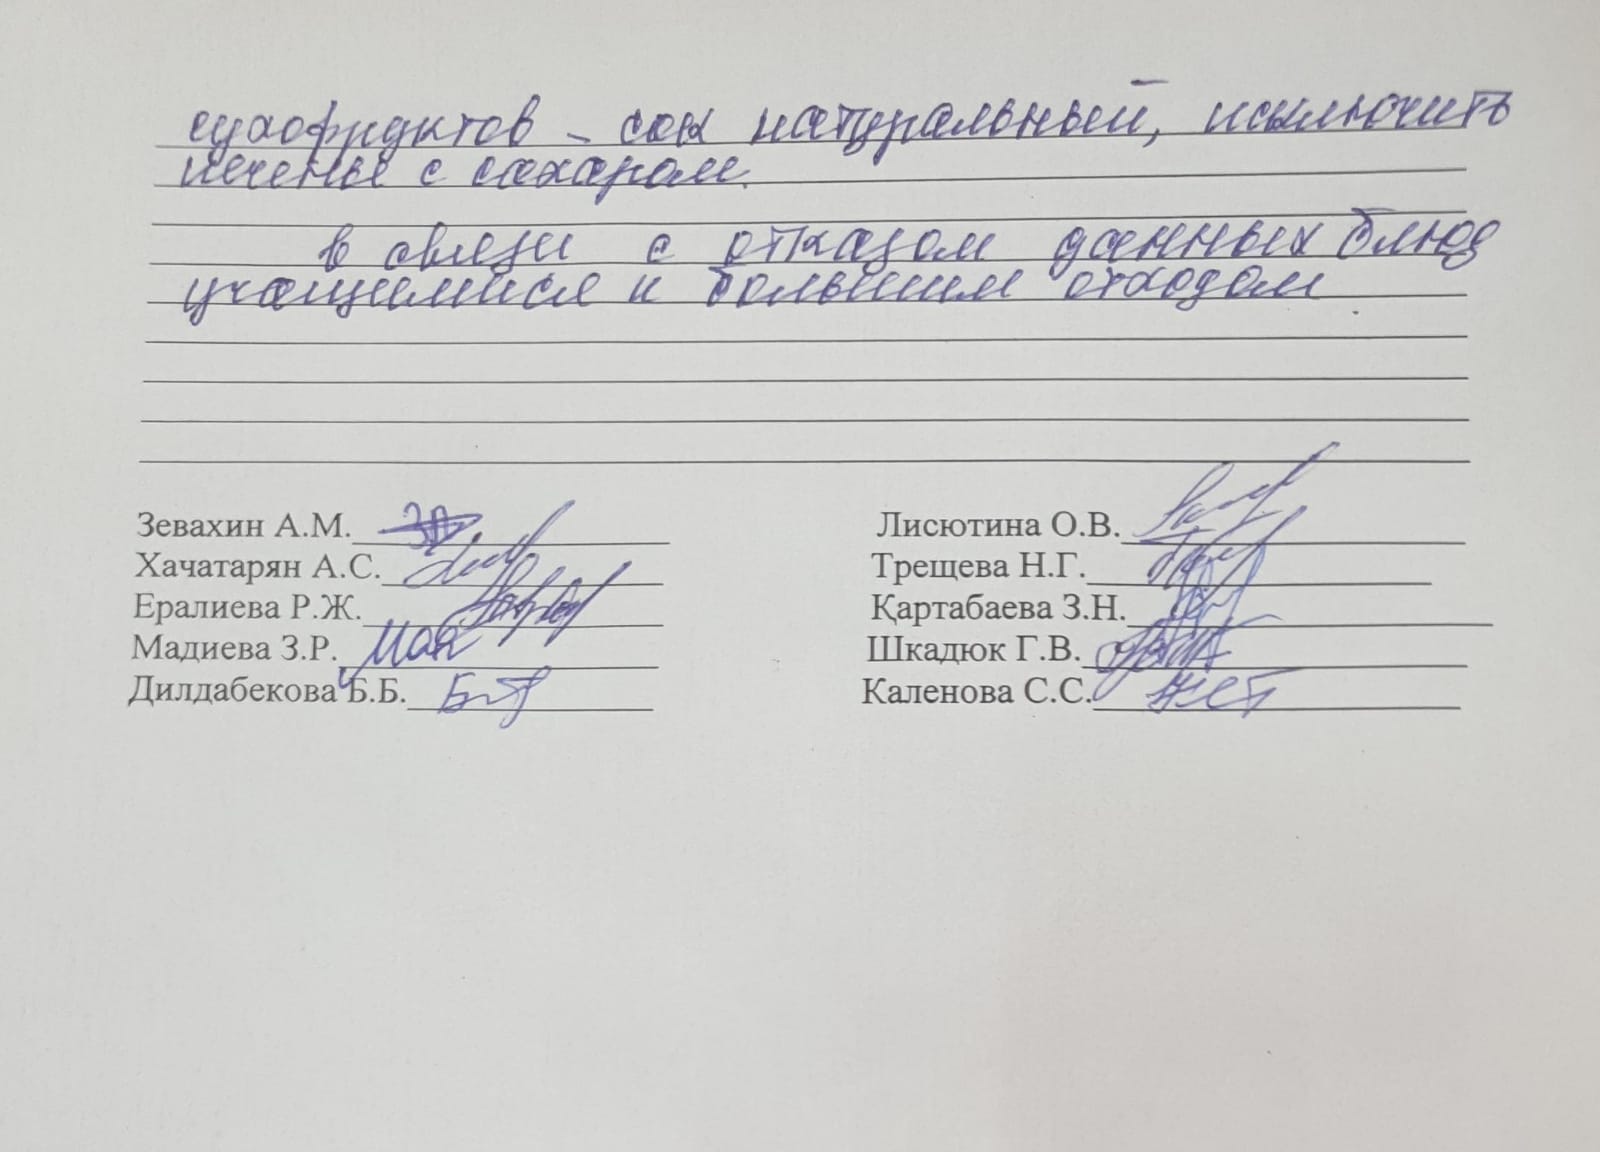 сухофруктов - сок натуральный, исключить
печенье с сахаром.
в связи с отказом данных блюд
учащимися и большим отходом
Зевахин А.М.
Лисютина О.В.
Хачатарян А.С.
Трещева Н.Г.
Ералиева Р.Ж.
Қартабаева З.Н.
Мадиева З.Р.
Шкадюк Г.В.
Дилдабекова Б.Б.
Каленова С.С.